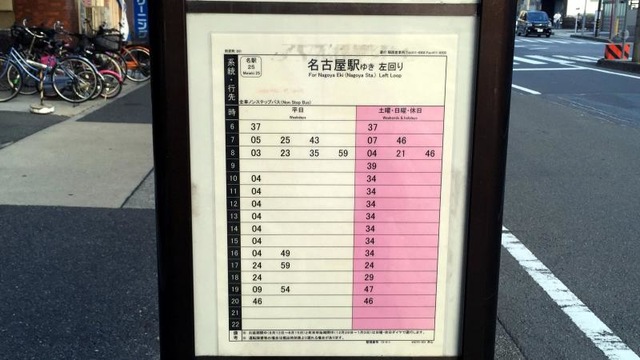 名駅
25
Meieki 25
名古屋駅ゆき 左回り
For Nagoya Eki (Nagoya Sta.) Left Loop
系統・行先
全車ノンステップバス(Non Step Bus)
時 平日 土曜・日曜・休日
Weekdays Weekends & Holidays
6 37 37
7 05 25 43 07 46
8 03 23 35 59 04 21 46
9 39
10 04 34
11 04 34
12 04 34
13 04 34
14 04 34
15 04 34
16 04 49 34
17 24 59 34
18 24 29
19 09 54 47
20 46 46
21
22
備考